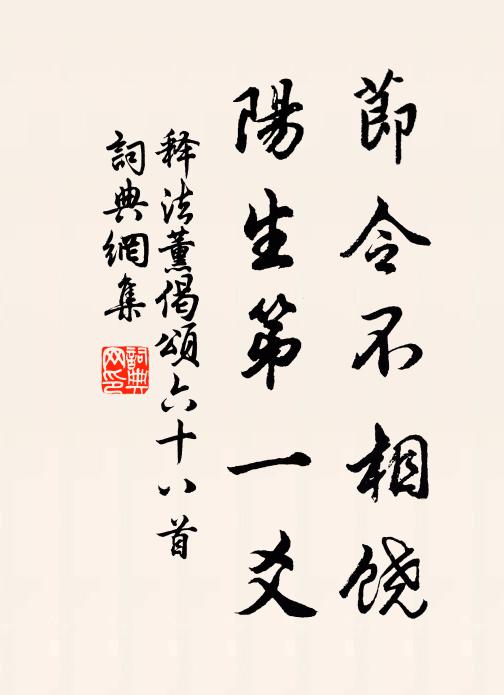 節令不相饶
陽生第一爻
释法薰偈頌六十八首
詞典網集
詞典网印